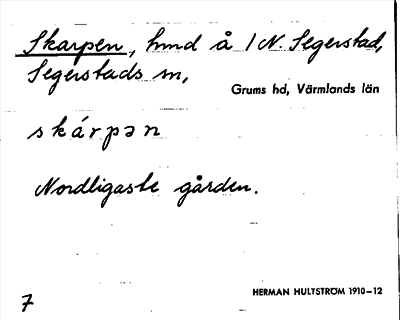 Skarpen, hmd å 1 N. Segerstad,
Segerstads sn,
Grums hd, Värmlands län
skárpən
Nordligaste gården.
HERMAN HULTSTRÖM 1910–12
7